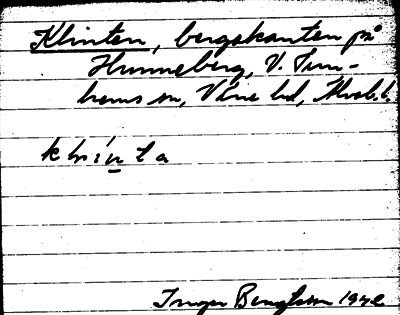 Klinten, bergskanten på
Hunneberg, V. Tun-
hems sn, Väne hd, Älvsb. l.
klinta
Inger Bengtsson 1942